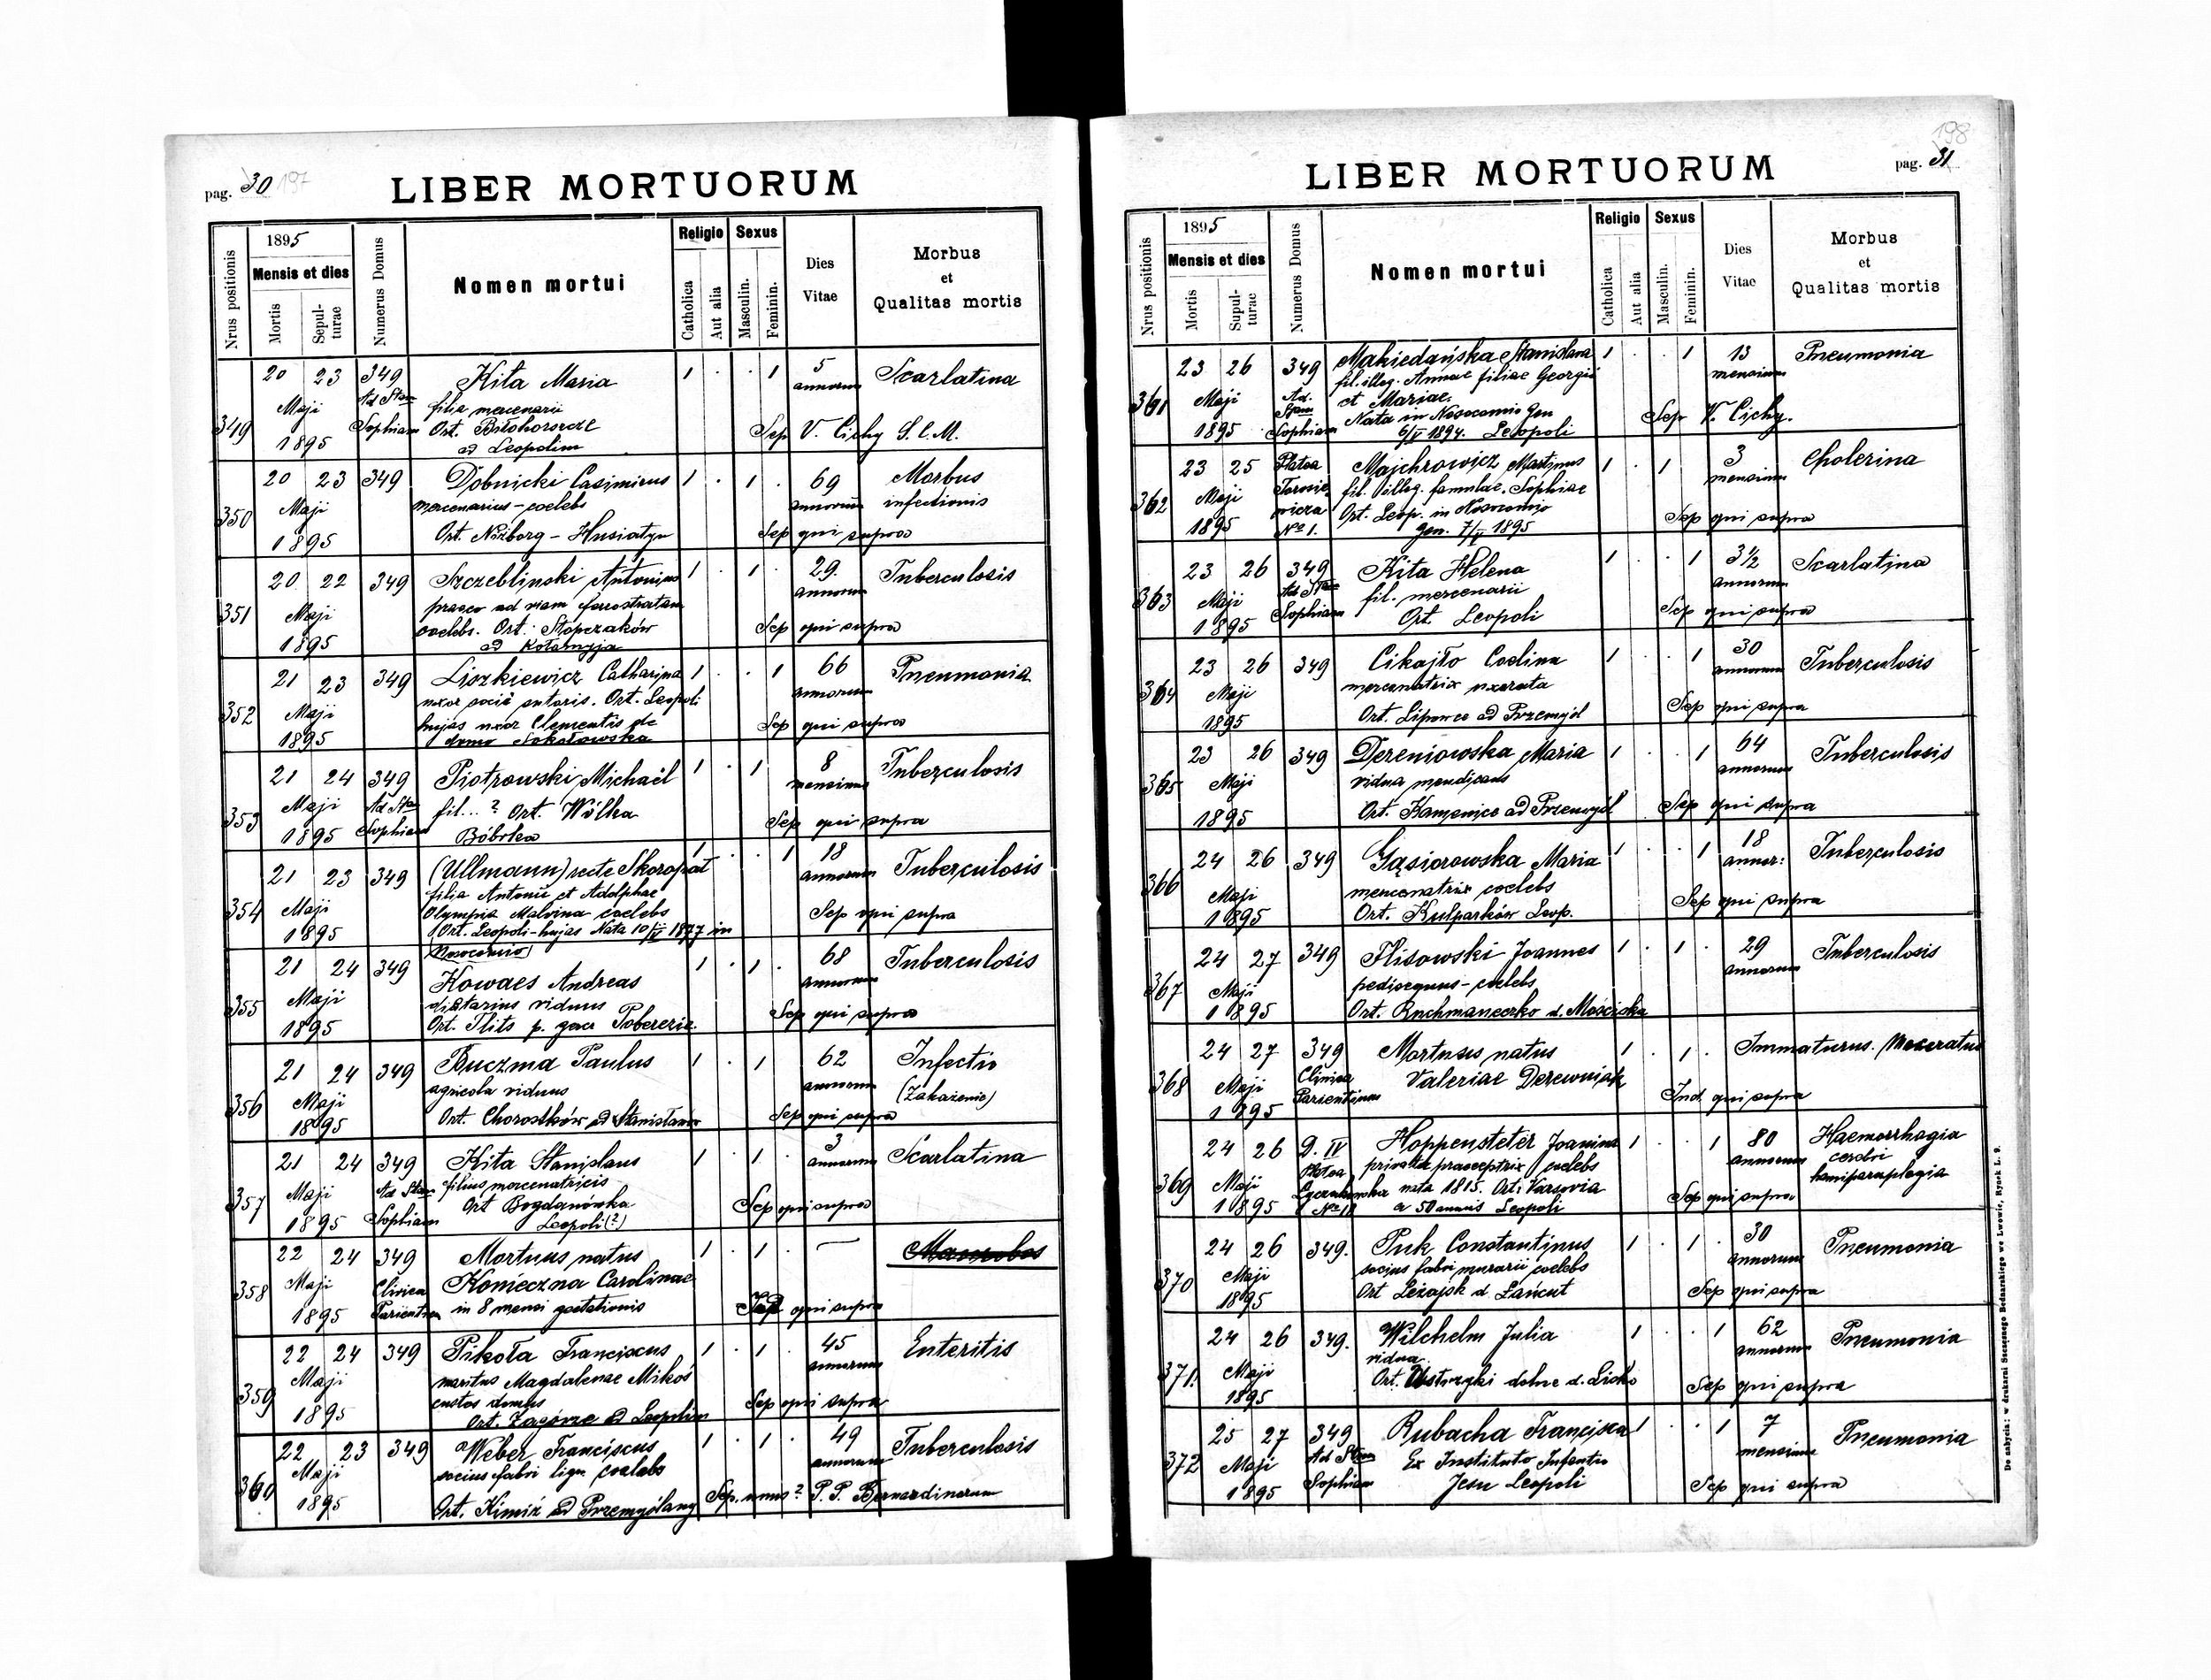 pag. 30 197
LIBER MORTUORUM
Nrus positionis
1895
Mensis et dies
Mortis
Sepulturae
Numerus Domus
Nomen mortui
Religio
Catholica
Aut alia
Sexus
Masculin.
Feminin.
Dies Vitae
Morbus et Qualitas mortis
349 20 23 349 Kita Maria 1 . . 1 5 Scarlatina
Maji Ad Stam filia mercenarii annorum
1895 Sophiam Ort. Biłohorszcze Sep V. Cichy S.C.M.
ad Leopolim
350 20 23 349 Dobnicki Casimirus 1 . 1 . 69 Morbus
Maji mercenarius - coelebs annorum infectionis
1895 Ort. Niżborg - Husiatyn Sep qui supra
351 20 22 349 Szczeblinski Antonius 1 . 1 . 29. Tuberculosis
Maji praeco ad viam ferrostratam annorum
1895 coelebs. Ort. Słopczaków Sep qui supra
ad Kołomyja
352 21 23 349 Liszkiewicz Catharina 1 . . 1 66 Pneumonia
Maji uxor socii sutoris. Ort. Leopoli annorum
1895 hujas uxor Clementis de Sep qui supra
domo Sokołowska
353 21 24 349 Piotrowski Michaël 1 . 1 8 Tuberculosis
Maji Ad Stam fil...? Ort. Wólka mensium
1895 Sophiam Bóbrka Sep qui supra
354 21 23 349 (Ullmann) recte Skoropat 1 . . 1 18 Tuberculosis
Maji filia Antonii et Adolphae annorum
1895 Olympia Malvina coelebs Sep qui supra
Ort. Leopoli - hujas Nata 10/IV 1877 in
Nosocomio
355 21 24 349 Kowacs Andreas 1 . 1 . 68 Tuberculosis
Maji viduus annorum
1895 Ort. Sep qui supra
356 21 24 349 Buczma Paulus 1 . 1 62 Infectio
Maji agricola viduus annorum (Zakażenie)
1895 Ort. Chorostków ad Stanisławów Sep qui supra
357 21 24 349 Kita Stanislaus 1 . 1 . 3 Scarlatina
Maji Ad Stam filius mercenatricis annorum
1895 Sophiam Ort Bogdanówka Sep qui supra
Leopoli (?)
358 22 24 349 Mortuus natus 1 . 1 .
Maji Clinica Konieczna Carolinae
1895 Parientium in 8 mensi gestationis qui supra
359 22 24 349 Pikota Franciscus 1 . 1 . 45 Enteritis
Maji maritus Magdalenae Mikoś annorum
1895 custos domus Sep qui supra
Ort. Zagórze ad Leopolim
360 22 23 349 Weber Franciscus 1 . 1 . 49 Tuberculosis
Maji socius fabri lign. coelebs annorum
1895 Ort. Kimirz ad Przemyślany Sep. unus? P. P. Bernardinorum
198
pag. 31
LIBER MORTUORUM
Nrus positionis
1895
Mensis et dies
Mortis
Supulturae
Numerus Domus
Nomen mortui
Religio
Catholica
Aut alia
Sexus
Masculin.
Feminin.
Dies Vitae
Morbus et Qualitas mortis
361 23 26 349 Makiedańska Stanislava 1 . . 1 13 Pneumonia
Maji Ad. Stam fil. illeg. Annae filiae Georgii mensium
1895 Sophiam et Mariae.
Nata in Nosocomio Gen Sep V. Cichy.
6/V 1894. Leopoli
362 23 25 Platea Majchrowicz Martinus 1 . 1 3 Cholerina
Maji Torosiewicza fil. illeg. famulae, Sophiae mensium
1895 No 1. Ort. Leop. in Nosocomio Sep qui supra
Gen. 1895
363 23 26 349 Kita Helena 1 . . 1 3½ Scarlatina
Maji Ad Stam fil. mercenarii annorum
1895 Sophiam Ort. Leopoli Sep qui supra
364 23 26 349 Cikajło Coelina 1 . . 1 30 Tuberculosis
Maji mercenatrix uxorata annorum
1895 Ort. Lipowce ad Przemyśl Sep qui supra
365 23 26 349 Dereniowska Maria 1 . . 1 64 Tuberculosis
Maji vidua mendicans annorum
1895 Ort. Kamienice ad Przemyśl Sep qui supra
366 24 26 349 Gąsiorowska Maria 1 . . 1 18 Tuberculosis
Maji mercenatrix coelebs annor:
1895 Ort. Kulparków Leop. Sep qui supra
367 24 27 349 Flisowski Joannes 1 . 1 . 29 Tuberculosis
Maji pedisequus - coelebs annorum
1895 Ort. d. Mościska
368 24 27 349 Mortuus natus 1 . 1 . Immaturus. Maceratus
Maji Clinica Valeriae Derewniak
1895 Parientium Ind. qui supra
369 24 26 D. IV Hoppensteter Joanina 1 . . 1 80 Haemorrhagia
Maji Platea privata praeceptrix coelebs annorum cerebri
1895 Łyczakowska nata 1815. Ort: Varsovia Sep qui supra hemiparaplegia
No 18 a 50 annis Leopoli
370 24 26 349. Puk Constantinus 1 . 1 . 30 Pneumonia
Maji socius fabri murarii coelebs annorum
1895 Ort Leżajsk d. Łańcut Sep qui supra
371. 24 26 349. Wilchelm Julia 1 . . 1 62 Pneumonia
Maji vidua annorum
1895 Ort. Ustrzyki dolne d. Lisko Sep qui supra
372 25 27 349 Rubacha Francisca 1 . . 1 7 Pneumonia
Maji Ad Stam Ex Instituto Infantis mensium
1895 Sophiam Jesu Leopoli Sep qui supra
Do nabycia: w drukarni Szczęsnego Bednarskiego we Lwowie, Rynek L. 9.